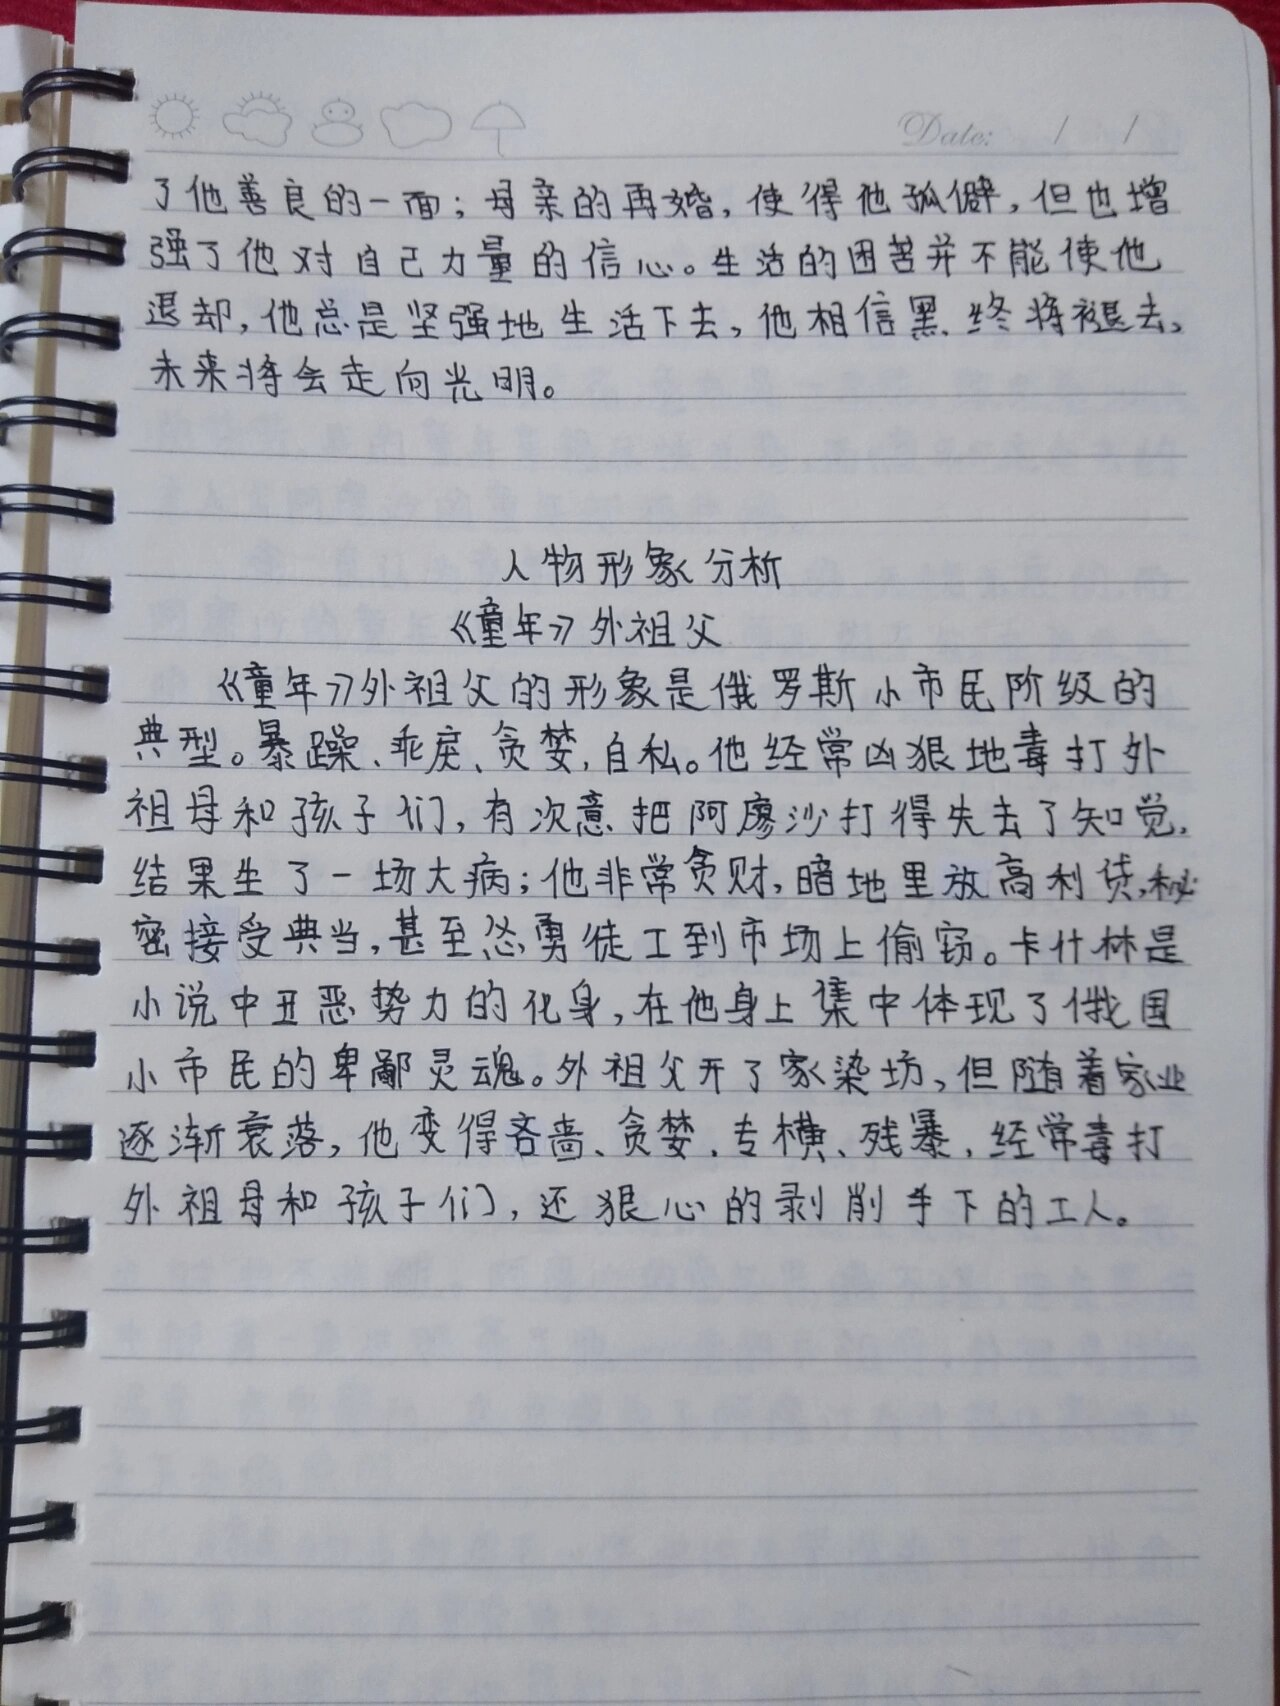 Date: / /
了他善良的一面；母亲的再婚，使得他孤僻，但也增
强了他对自己力量的信心。生活的困苦并不能使他
退却，他总是坚强地生活下去，他相信黑终将褪去，
未来将会走向光明。
人物形象分析
《童年》外祖父
《童年》外祖父的形象是俄罗斯小市民阶级的
典型。暴躁、乖戾、贪婪，自私。他经常凶狠地毒打外
祖母和孩子们，有次意把阿廖沙打得失去了知觉，
结果生了一场大病；他非常贪财，暗地里放高利贷，秘
密接受典当，甚至怂勇徒工到市场上偷窃。卡什林是
小说中丑恶势力的化身，在他身上集中体现了俄国
小市民的卑鄙灵魂。外祖父开了家染坊，但随着家业
逐渐衰落，他变得吝啬、贪婪、专横、残暴，经常毒打
外祖母和孩子们，还狠心的剥削手下的工人。